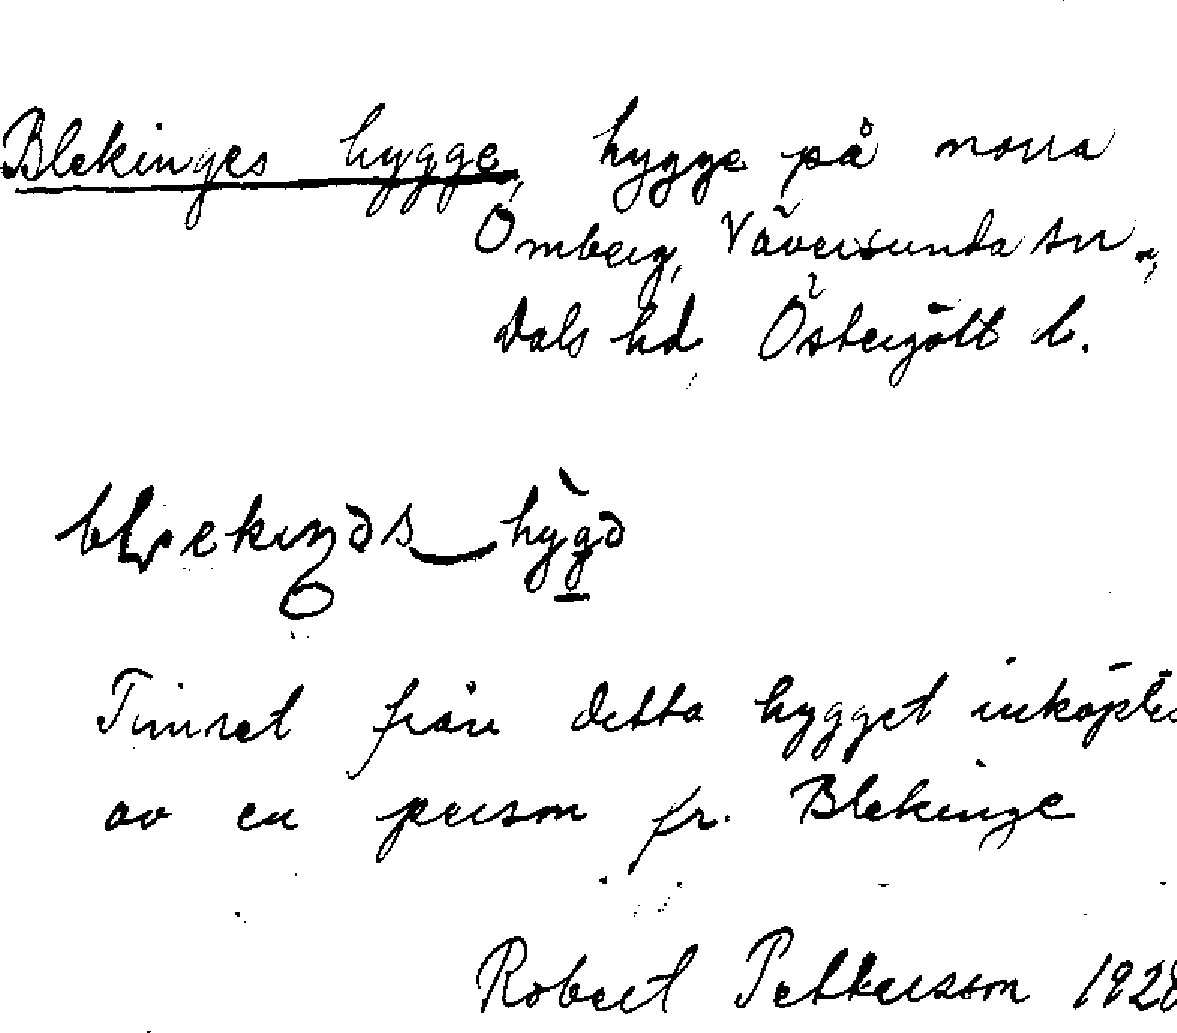 Blekinges hygge, hygge på norra
Omberg, Väversunda sn.,
Dals hd, Östergötl l.
hygə
Timret från detta hygget inköptes
av en person fr. Blekinge
Robert Pettersson 1928